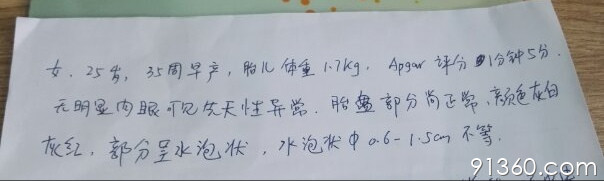 女、25岁，35周早产，胎儿体重1.7kg，Apgar评分1分钟5分．
无明显肉眼可见先天性异常．胎盘部分尚正常，颜色灰白
灰红，部分呈水泡状，水泡状Φ0.6-1.5cm不等．
91360.com